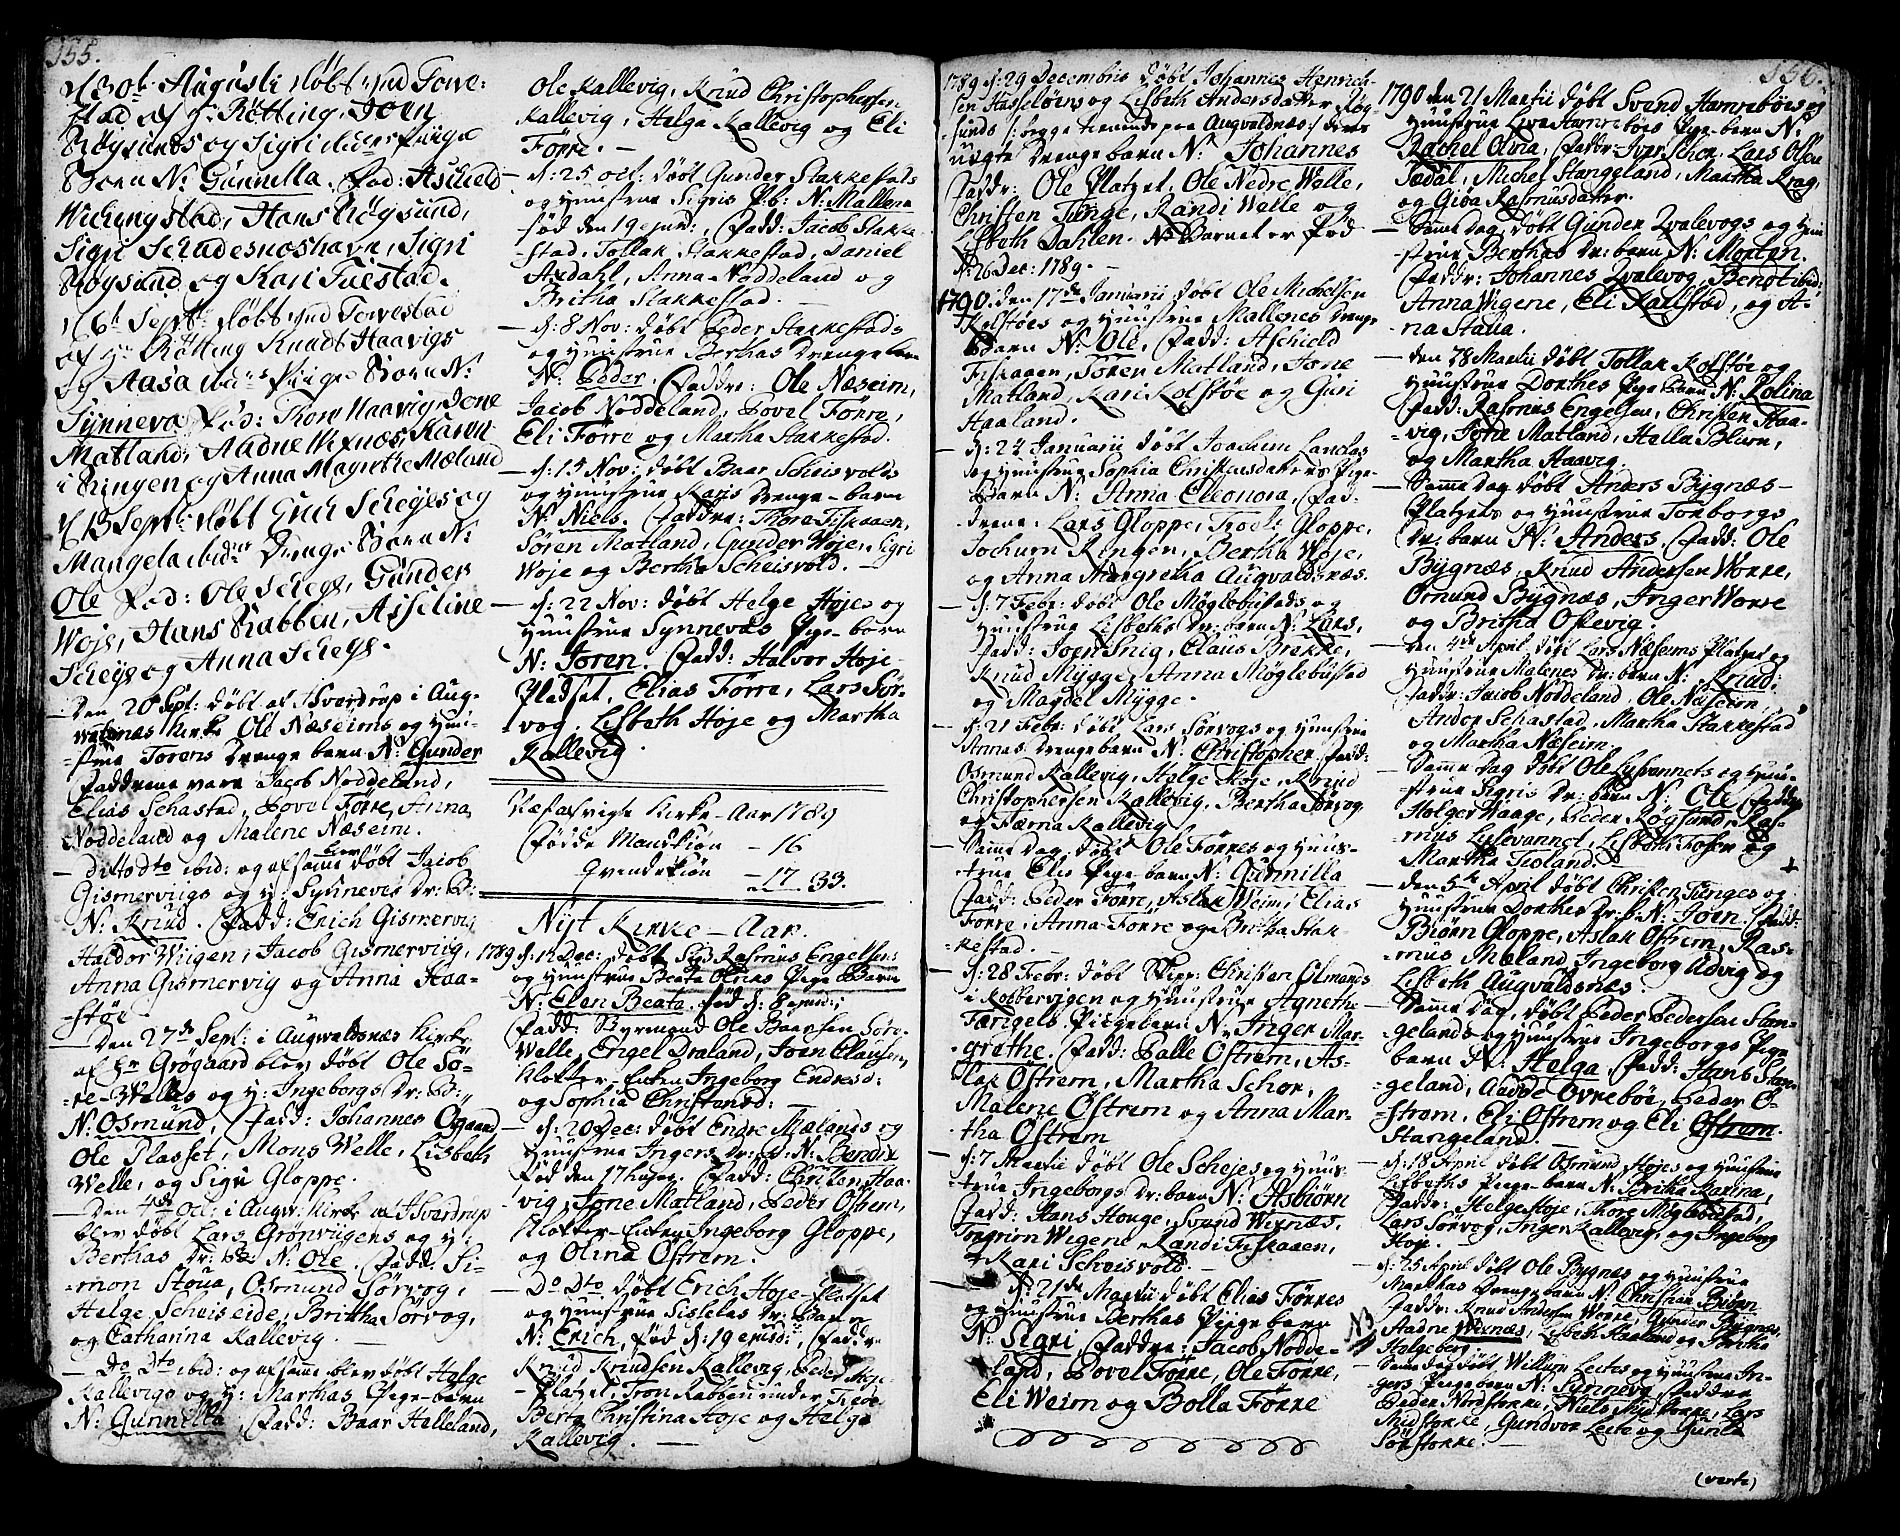 155.
d 30t Augusti døbt ved Torve-
stad af Hr Røtting, Joen
Røgsunds og Sigri ibidems Piige
Børn N: Gunnilla. Fad: Aschield
Wichingstad, Hans Røgsund,
Sigri Schudesnæshavn, Sigri
Røgsund og Kari Tuestad.
d 6t Septr døbt ved Torvestad
af Hr Røtting Knudt Haavigs
og Aasa ibidms Piige Børn N:
Synneva Fad: Thore Haavig, Jone
Matland, Aadne Wixnæs, Karen
Matland og Anna Magrethe Mæland
i Ringen
d 13 Septr: døbt Erich Scheies og
Mangela ibidms Drenge Børn N:
Ole Fad: Ole Scheje, Gunder
Woje, Hans Rabben, Asseline
Scheje og Anna Scheje.
Den 20 Sept: døbt af Hr Sverdrup i Aug-
waldnæs Kirke Ole Næseims og Huu-
strue Torens Drenge barn N: Gunder
Faddrene vare Jacob Noddeland,
Elias Sehastad, Povel Førre, Anna
Noddeland og Malene Næseim.
Ditto Dto ibid: og af samme blev døbt Jacob
Gismervigs og H: Synneves Dr: B:
N: Knud. Fadd: Erich Gismervig,
Haldor Wiigen, Jacob Gismervig,
Anna Gismervig og Anna Haa-
støe.
Den 27de Sept: i Augwaldsnæs Kirke
af Hr Grøgaard blev døbt Ole Sø-
re-Welles og H: Ingeborgs Dr: B:
N: Osmund, Fadd: Johannes Oggaard
Ole Plasset, Mons Welle, Lisbeth
Welle, og Sigri Gloppe.
Den 4de Oct: i Augw: Kirke af Hr Sverdrup
blev døbt Lars Grønviigens og H:
Berthas Dr: b. N: Ole. Fadd: Si-
mon Stoua, Osmund Sørvog,
Helge Scheiseide, Brittha Sørvog,
og Catharina Kallevig.
Do Dto ibid: og af samme blev døbt Helge
Kallevigs og H: Marthas Pige-barn
N: Gunnilla, Fadd: Baar Helleland,
Ole Kallevig, Knud Christophersen
Kallevig, Helga Kallevig og Eli
Førre.
d: 25 oct: døbt Gunder Stakkestads
og Huustrue Sigris P:b: N: Mallena
fød den 19 ejusd:, Fadd: Jacob Stakke-
stad, Tollak Stakkestad, Daniel
Axdahl, Anna Noddeland og
Britha Stakkestad.
d: 8 Nov: døbt Peder Stakkestads
og Huustrue Berthas Drenge barn
N: Peder. Faddr: Ole Næseim,
Jacob Noddeland, Povel Førre,
Eli Førre og Martha Stakkestad.
d: 15 Nov: døbt Baar Scheisvolds
og Huustrue Karis Drenge-barn
N: Niels. Faddre: Thore Fiskaaen,
Søren Matland, Gunder Woje, Sigri
Woje og Bertha Scheisvold.
d: 22 Nov: døbt Helge Hojes og
Huustrue Synneves Pige-barn
N: Joren. Fadd: Halvor Hoje-
Pladset, Elias Førre, Lars Sør-
vog, Lisbeth Hoje og Martha
Kallevig.
Kirke-Aar 1789
Fødde Mandkiøn - 16
Qvendekiøn - 17 33.
Nyt Kirke-Aar.
1789 d: 12 Dec: døbt Sr Rasmus Engelsens
og Huustrue Beata Olines Pige Barn
N: Elen Beata, fød d: 8 ejusd:
Fadd: Styrmand Ole Baarsen Søre-
Welle, Engel Draland, Joen Clausen,
Klokker-Enken Ingeborg Endresd:
og Sophia Christensd:
d: 20 Dec: døbt Endre Mælands og
Huustrue Ingers Dr: b: N: Bendix
Fød den 17 hujus. Fadd: Christen Haa-
vig, Jone Matland, Peder Østrem,
Klokker-Enken Ingeborg Gloppe,
og Olina Østrem.
Do Dto døbt Erich Hoje-Pladset
og Huustrue Sisseles Dr: Barn
N: Erich, fød d: 19 ejusd:, Faddre
Knud Knudsen Kallevig, Peder Hoje-
Platzet, Tron Rabben under Tiøsv.
Berta Christina Hoje og Helga
Kallevig.
156.
1789 d: 29 Decembris døbt Johannes Henrich-
sen Hasseløens og Lisbeth Andersdatter Røg-
sunds /: begge tienende paa Augvaldnæs :/ deres
uægte Drenge barn N: Johannes
Faddr: Ole Platzet, Ole Nedre Welle,
Christen Tunge, Randi Welle og
Lisbeth Dahlen. NB Barnet er Fød
d: 26 Dec: 1789.
1790. den 17de Januarii døbt Ole Michelsen
Kolstøes og Huustrue Mallenes Drenge
Barn N: Ole, Fadd: Aschield
Fiskaaen, Søren Matland, Jone
Matland, Kari Kolstøe og Guri
Haaland.
d: 24 Januarii døbt Joachim Landaas
og Huustrue Sophia Christensdatters Pige-
Barn N: Anna Eleonora. Fad-
drene: Lars Gloppe, Troels Gloppe,
Jochum Ringen, Bertha Woje,
og Anna Margretha Augvaldsnæs.
d: 7 Febr: døbt Ole Møglebustads og
Huustrue Lisbeths Dr: barn N: Lars,
Fadd: Joen Snig, Claus Brekke,
Knud Mygge, Anna Møglebustad
og Magdel Mygge.
d: 21 Febr: døbt Lars Sørvogs og Huustrue
Annas Drenge barn N: Christopher Fadd:
Osmund Kallevig, Helge Hoje, Knud
Christophersen Kallevig, Bertha Sørvog
og Færna Kallevig.
Samme Dag døbt Ole Førres og Huus-
true Elis Pige-barn N: Gunnilla
Fadd: Peder Førre, Aslak Weim, Elias
Førre, Anna Førre og Britha Stak-
kestad.
d: 28 Febr: døbt Skipr: Christen Olmands
i Kobbervigen og Huustrue Agnethe
Tærgels Piigebarn N: Inger Mar-
grethe. Fadd: Palle Østrem, As-
lak Østrem, Martha Schor,
Malene Østrem og Anna Mar-
tha Østrem
d: 7 Martii døbt Ole Schejes og Huus-
true Ingeborgs Dr: barn N: Asbiørn
Fadd: Hans Houge, Svend Wixnæs,
Torgrim Wigene, Randi Fiskaaen,
Kari Scheisvold.
d: 21de Martii døbt Elias Førres
og Huustrue Berthas Piige barn
N: Sigri, Faddre: Jacob Nodde-
land, Povel Førre, Ole Førre,
Eli Weim og Bolla Førre
1790 den 21 Martii døbt Svend Hamrebøes og
Huustrue Liva Hamrebøes Pige-barn N:
Rachel Olivia, Faddr: Iver Schor, Lars Olsen
Tædal, Michel Stangeland, Martha Krag,
og Giøa Rasmusdatter.
Samme Dag døbt Gunder Qvalevogs og Huu-
strue Berthas Dr: barn N: Morten.
Faddr: Johannes Qvalevog, Bendt ibid:
Anna Wigene, Eli Karlstad, og A-
na Staua.
Den 28 Martii døbt Tollak Kolstøe og
Huustrue Dorthes Pige barn N: Kolina
Fadd: Rasmus Engelsen, Christen Haa-
vig, Jone Matland, Helle Bluun,
og Martha Haavig.
Samme Dag døbt Anders Bygnæs-
Platzets og Huustrue Torborgs
Dr: barn N: Anders. Fadd: Ole
Bygnæs, Knud Andersen Worre,
Ormund Bygnæs, Inger Worre
og Britha Ostevig.
Den 4de April døbt Lars Næseims Platzet og
Huustrue Malenes Dr: barn N: Knud:
Faddr: Jacob Noddeland, Ole Næseim,
Ander Sehastad, Martha Stakkestad
og Martha Næseim.
Samme Dag døbt Ole Lysvannets og Huu-
strue Sigris Dr: barn N: Ole Fadd:
Holger Waage, Peder Røgsund, Ras-
mus Lysevannet, Lisbeth Tosen og
Martha Tioland.
Den 5te April døbt Christen Tunges og
Huustrue Dorthes Dr: b: N: Joen. Fadd:
Biørn Gloppe, Aslak Østrem, Ras-
mus Maland, Ingeborg Udvig og
Lisbeth Augvaldsnæs.
Samme Dag, døbt Peder Pedersen Stan-
gelands og Huustrue Ingeborgs Pige
barn N: Helga, Fadd: Hans Stan-
geland, Aadde Ovrebøe, Peder Ø-
strøm, Eli Østrem og Eli Østrem.
Stangeland.
d: 18 April døbt Osmund Hojes og Huustrue
Lisbeths Pige-barn N: Britha Karina,
Faddr: Helge Hoje, Thore Møglebustad,
Lars Sørvog, Inger Kallevig, og Ingeborg
Hoje.
d: 25 April døbt Ole Bygnæs og Huustrue
Marthas Drenge barn N: Christian Biørn
Faddr: Knud Andersen Worre, Gunder Bygnæs,
NB Aadne Wixnæs, Lisbeth Haaland og Britha
Helgeberg.
Samme dag døbt Willum Leetes og Huustrue In-
gers Pige barn N: Synneva Faddre
Peder Nordstokke, Niels Midstokke, Lars
Midstokke, Gundvor Leete og Gunla
Sørstokke.
(verte)